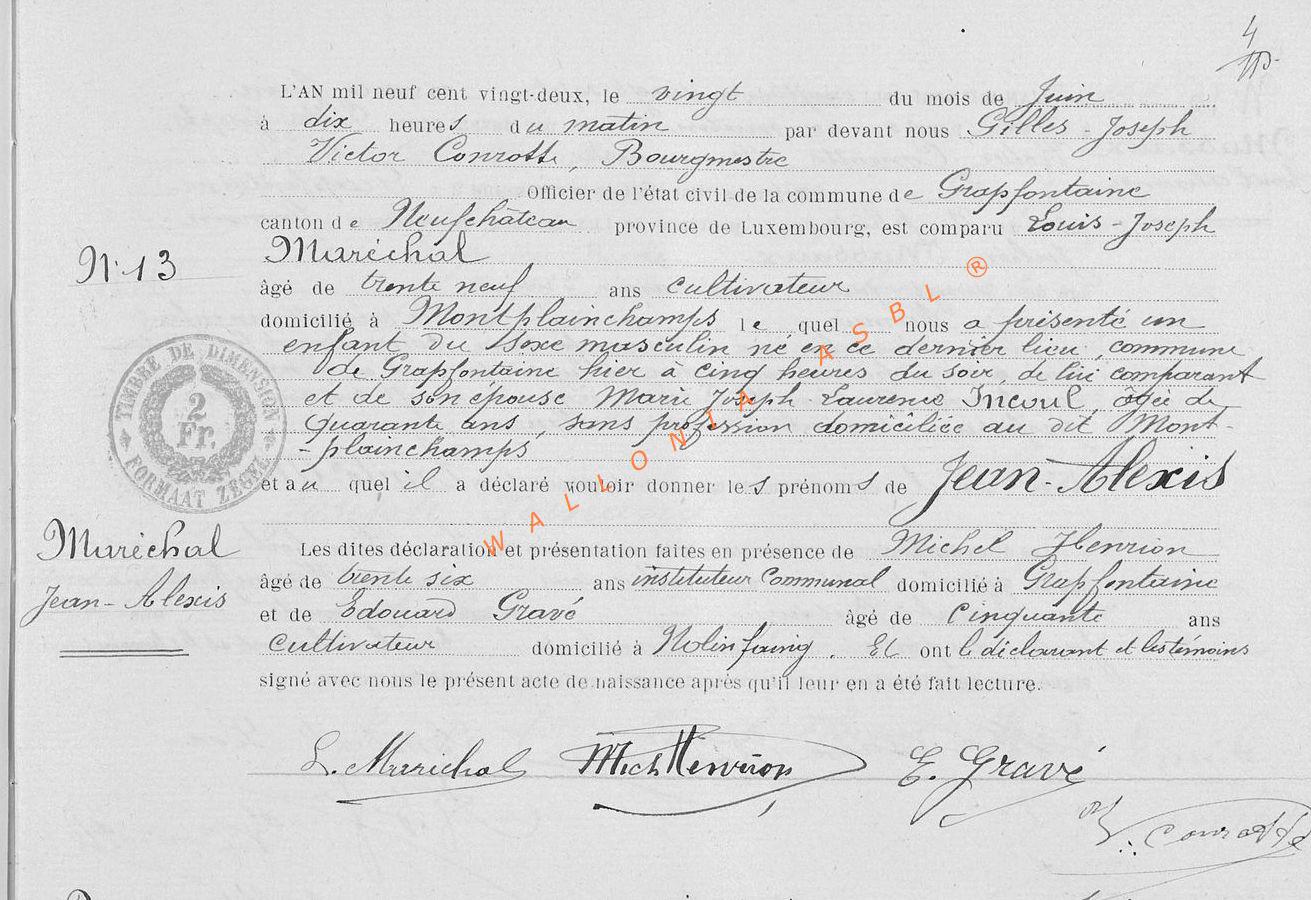 4
L'AN mil neuf cent vingt-deux, le vingt du mois de Juin
à dix heures du matin par devant nous Gilles-Joseph
Victor Conrotte, Bourgmestre
Officier de l'état civil de la commune de Grapfontaine
canton de Neufchâteau province de Luxembourg, est comparu Louis-Joseph
N° 13 Maréchal
âgé de trente neuf ans cultivateur
domicilié à Montplainchamps lequel nous a présenté un
enfant du sexe masculin né en ce dernier lieu, commune
de Grapfontaine hier à cinq heures du soir, de lui comparant
et de son épouse Marie Joseph Laurence Incoul, âgée de
quarante ans, sans profession domiciliée au dit Mont-
-plainchamps
TIMBRE DE DIMENSION
2
Fr.
FORMAAT ZEGEL
et au quel il a déclaré vouloir donner les prénoms de Jean-Alexis
Maréchal
Jean-Alexis
Les dites déclaration et présentation faites en présence de Michel Henrion
âgé de trente six ans instituteur communal domicilié à Grapfontaine
et de Edouard Gravé âgé de cinquante ans
cultivateur domicilié à Nolinfaing. Et ont le déclarant et les témoins
signé avec nous le présent acte de naissance après qu'il leur en a été fait lecture.
L. Maréchal Mich Henrion E. Gravé
V. Conrotte
WALLONIA ASBL ®